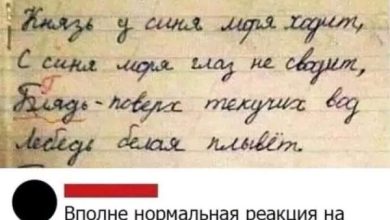 Князь у синя моря ходит,
С синя моря глаз не сводит,
Г
Блядь - поверх текучих вод
Лебедь белая плывёт.
Вполне нормальная реакция на